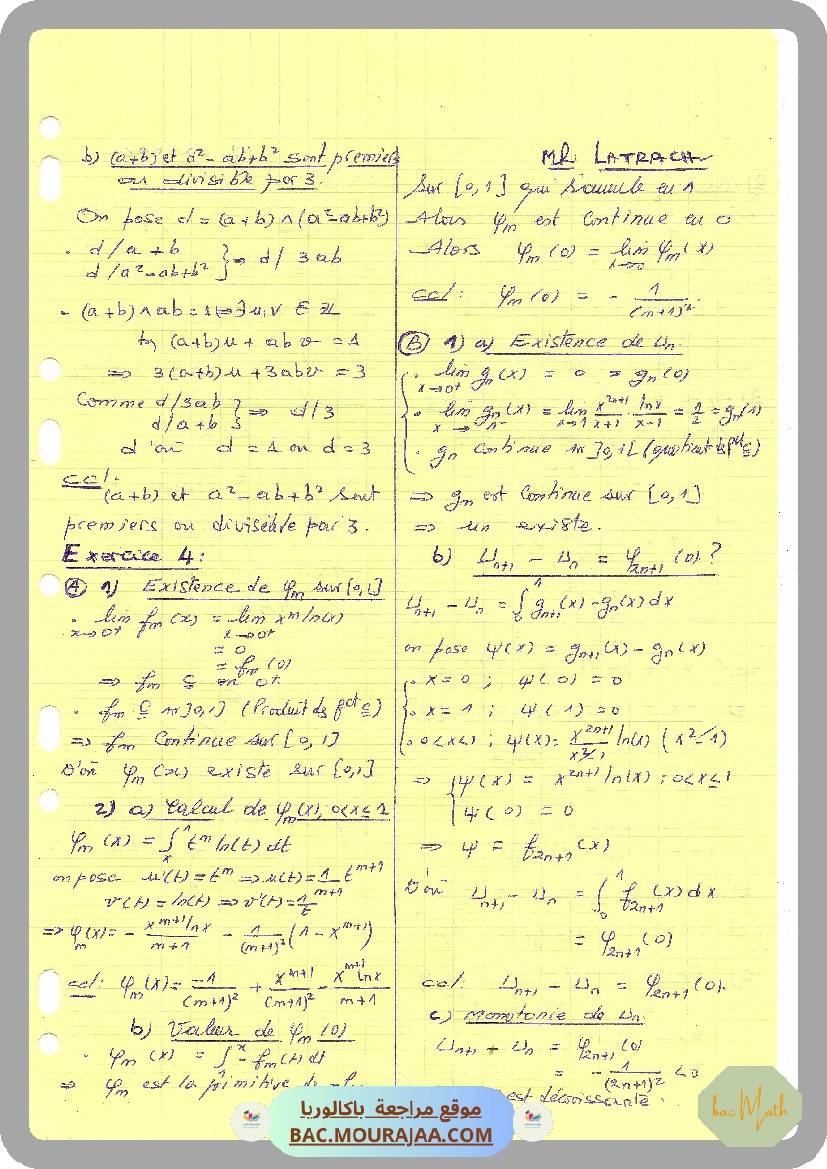 b) (a+b) et a² - ab+b² sont premiers
ou divisible par 3.
On pose d = (a+b) ∧ (a²-ab+b²)
. d / a + b
d / a² - ab+b² } ⇒ d / 3ab
- (a+b) ∧ ab = 1 ⇒ ∃ u,v ∈ Z
tq (a+b)u + ab v = 1
⇒ 3(a+b)u + 3abv = 3
Comme d/3ab
d/a+b } ⇒ d/3
d'où d = 1 ou d = 3
ccl:
(a+b) et a² - ab + b² sont
premiers ou divisible par 3.
Exercice 4:
(A) 1) Existence de φm sur [0,1]
. lim fm(x) = lim x^m ln(x)
x→0+ x→0+
= 0
= fm(0)
⇒ fm C en 0+
. fm C sur ]0,1] (Produit de fct C)
⇒ fm Continue sur [0,1]
D'où φm(x) existe sur [0,1]
2) a) Calcul de φm(x), 0<x≤1
φm(x) = ∫_x^1 t^m ln(t) dt
on pose u'(t) = t^m ⇒ u(t) = 1/(m+1) t^(m+1)
v(t) = ln(t) ⇒ v'(t) = 1/t
⇒ φm(x) = - x^(m+1) ln x / (m+1) - 1/(m+1)² (1 - x^(m+1))
ccl: φm(x) = -1/(m+1)² + x^(m+1)/(m+1)² - x^(m+1) ln x / (m+1)
b) Valeur de φm(0)
. φm(x) = ∫_1^x - fm(t) dt
⇒ φm est la primitive de -f
MR LATRACH
sur [0,1] qui s'annule en 1
Alors φm est Continue en 0
Alors φm(0) = lim φm(x)
x→0
ccl: φm(0) = - 1/(m+1)².
(B) 1) a) Existence de Un
. lim gn(x) = 0 = gn(0)
x→0+
. lim gn(x) = lim x^(2n+1)/(x+1) . ln x/(x-1) = 1/2 = gn(1)
x→1- x→1
. gn Continue sur ]0,1[ (quotient de fct C)
⇒ gn est Continue sur [0,1]
⇒ Un existe.
b) Un+1 - Un = φ2n+1(0)?
Un+1 - Un = ∫_0^1 gn+1(x) - gn(x) dx
on pose ψ(x) = gn+1(x) - gn(x)
. x = 0 ; ψ(0) = 0
. x = 1 ; ψ(1) = 0
. 0<x<1 ; ψ(x) = x^(2n+1)/(x²-1) ln(x) (x²-1)
⇒ { ψ(x) = x^(2n+1) ln(x) ; 0<x≤1
ψ(0) = 0
⇒ ψ = f2n+1(x)
D'où Un+1 - Un = ∫_0^1 f2n+1(x) dx
= φ2n+1(0)
ccl: Un+1 - Un = φ2n+1(0).
c) Monotonie de Un
Un+1 - Un = φ2n+1(0)
= - 1/(2n+2)² < 0
est décroissante.
موقع مراجعة باكالوريا
BAC.MOURAJAA.COM
bac Math